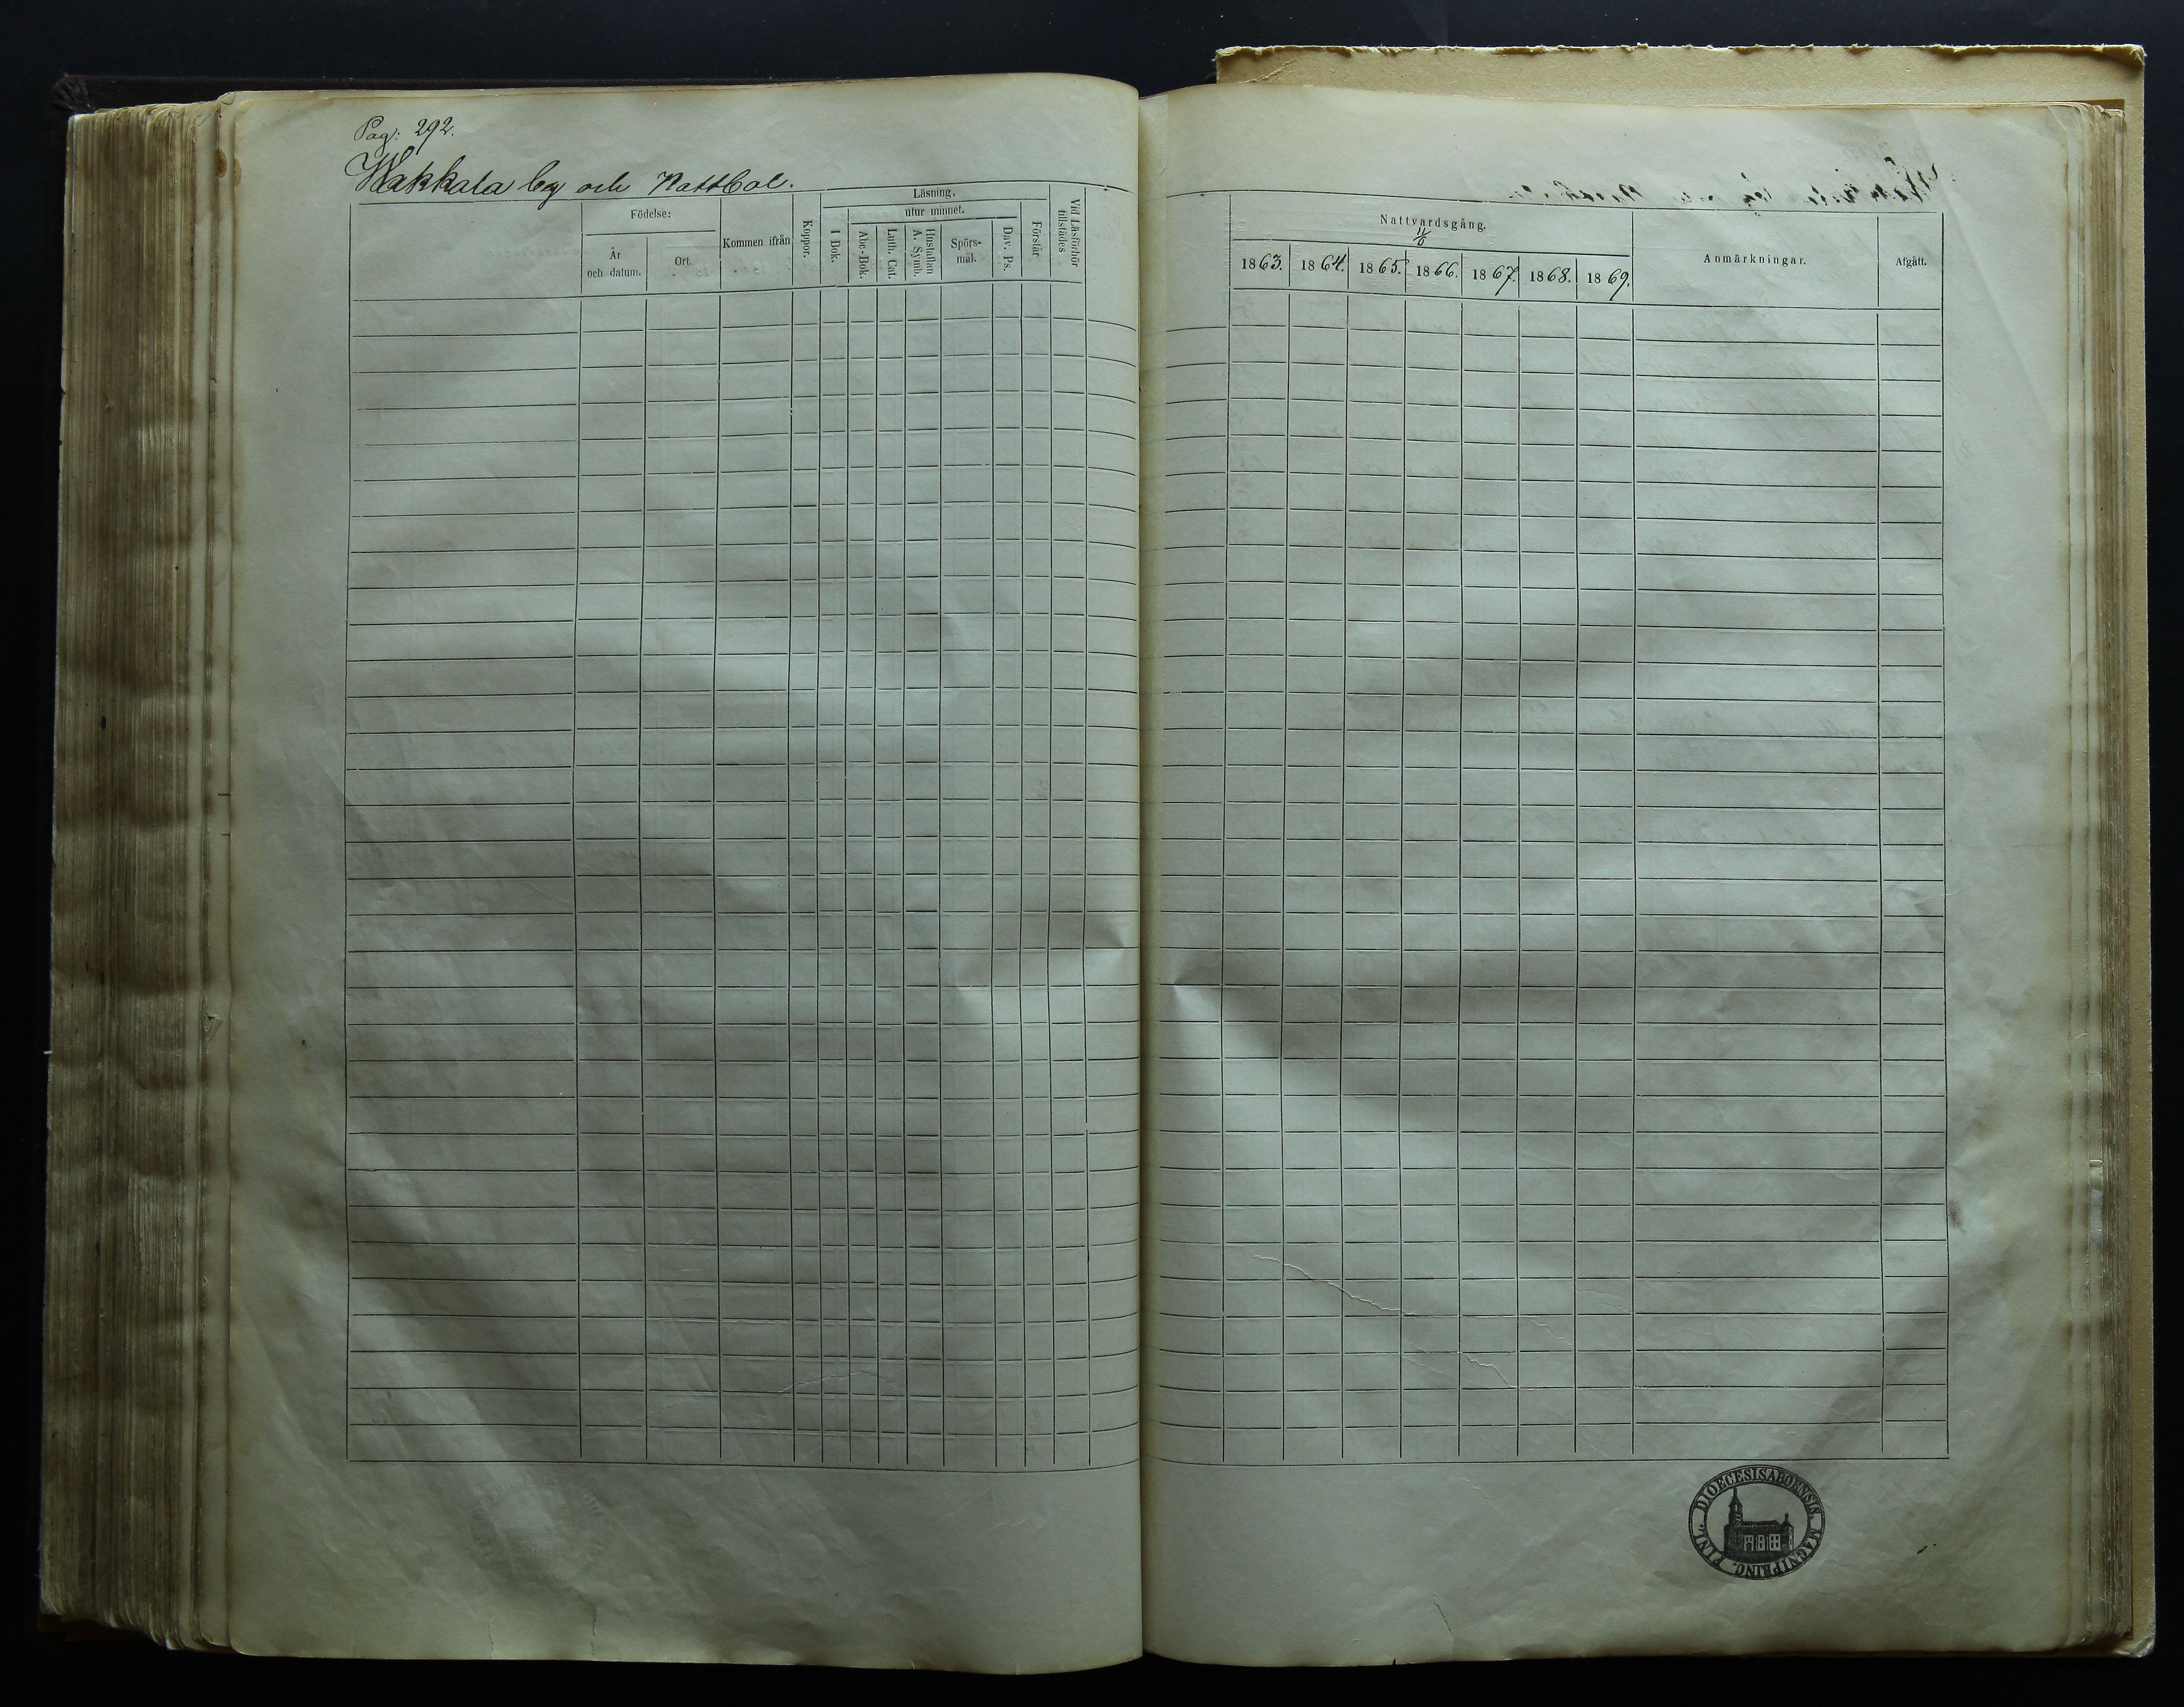 Pag: 292.
Wakkala by och Nattbol.
Födelse:
År
och datum.
Ort.
Kommen ifrån
Koppor.
Läsning.
I Bok.
utur minnet.
Abc-Bok.
Luth. Cat.
Hustaflan
A. Symb.
Spörs-
mål.
Dav. Ps.
Förstår
Vid Läsförhör
tillstädes
Nattvardsgång.
11/6
1863. 1864. 1865. 1866. 1867. 1868. 1869.
Anmärkningar.
Afgått.
DIOECESIS ABOENSIS MAGNI PRINC. FINL.